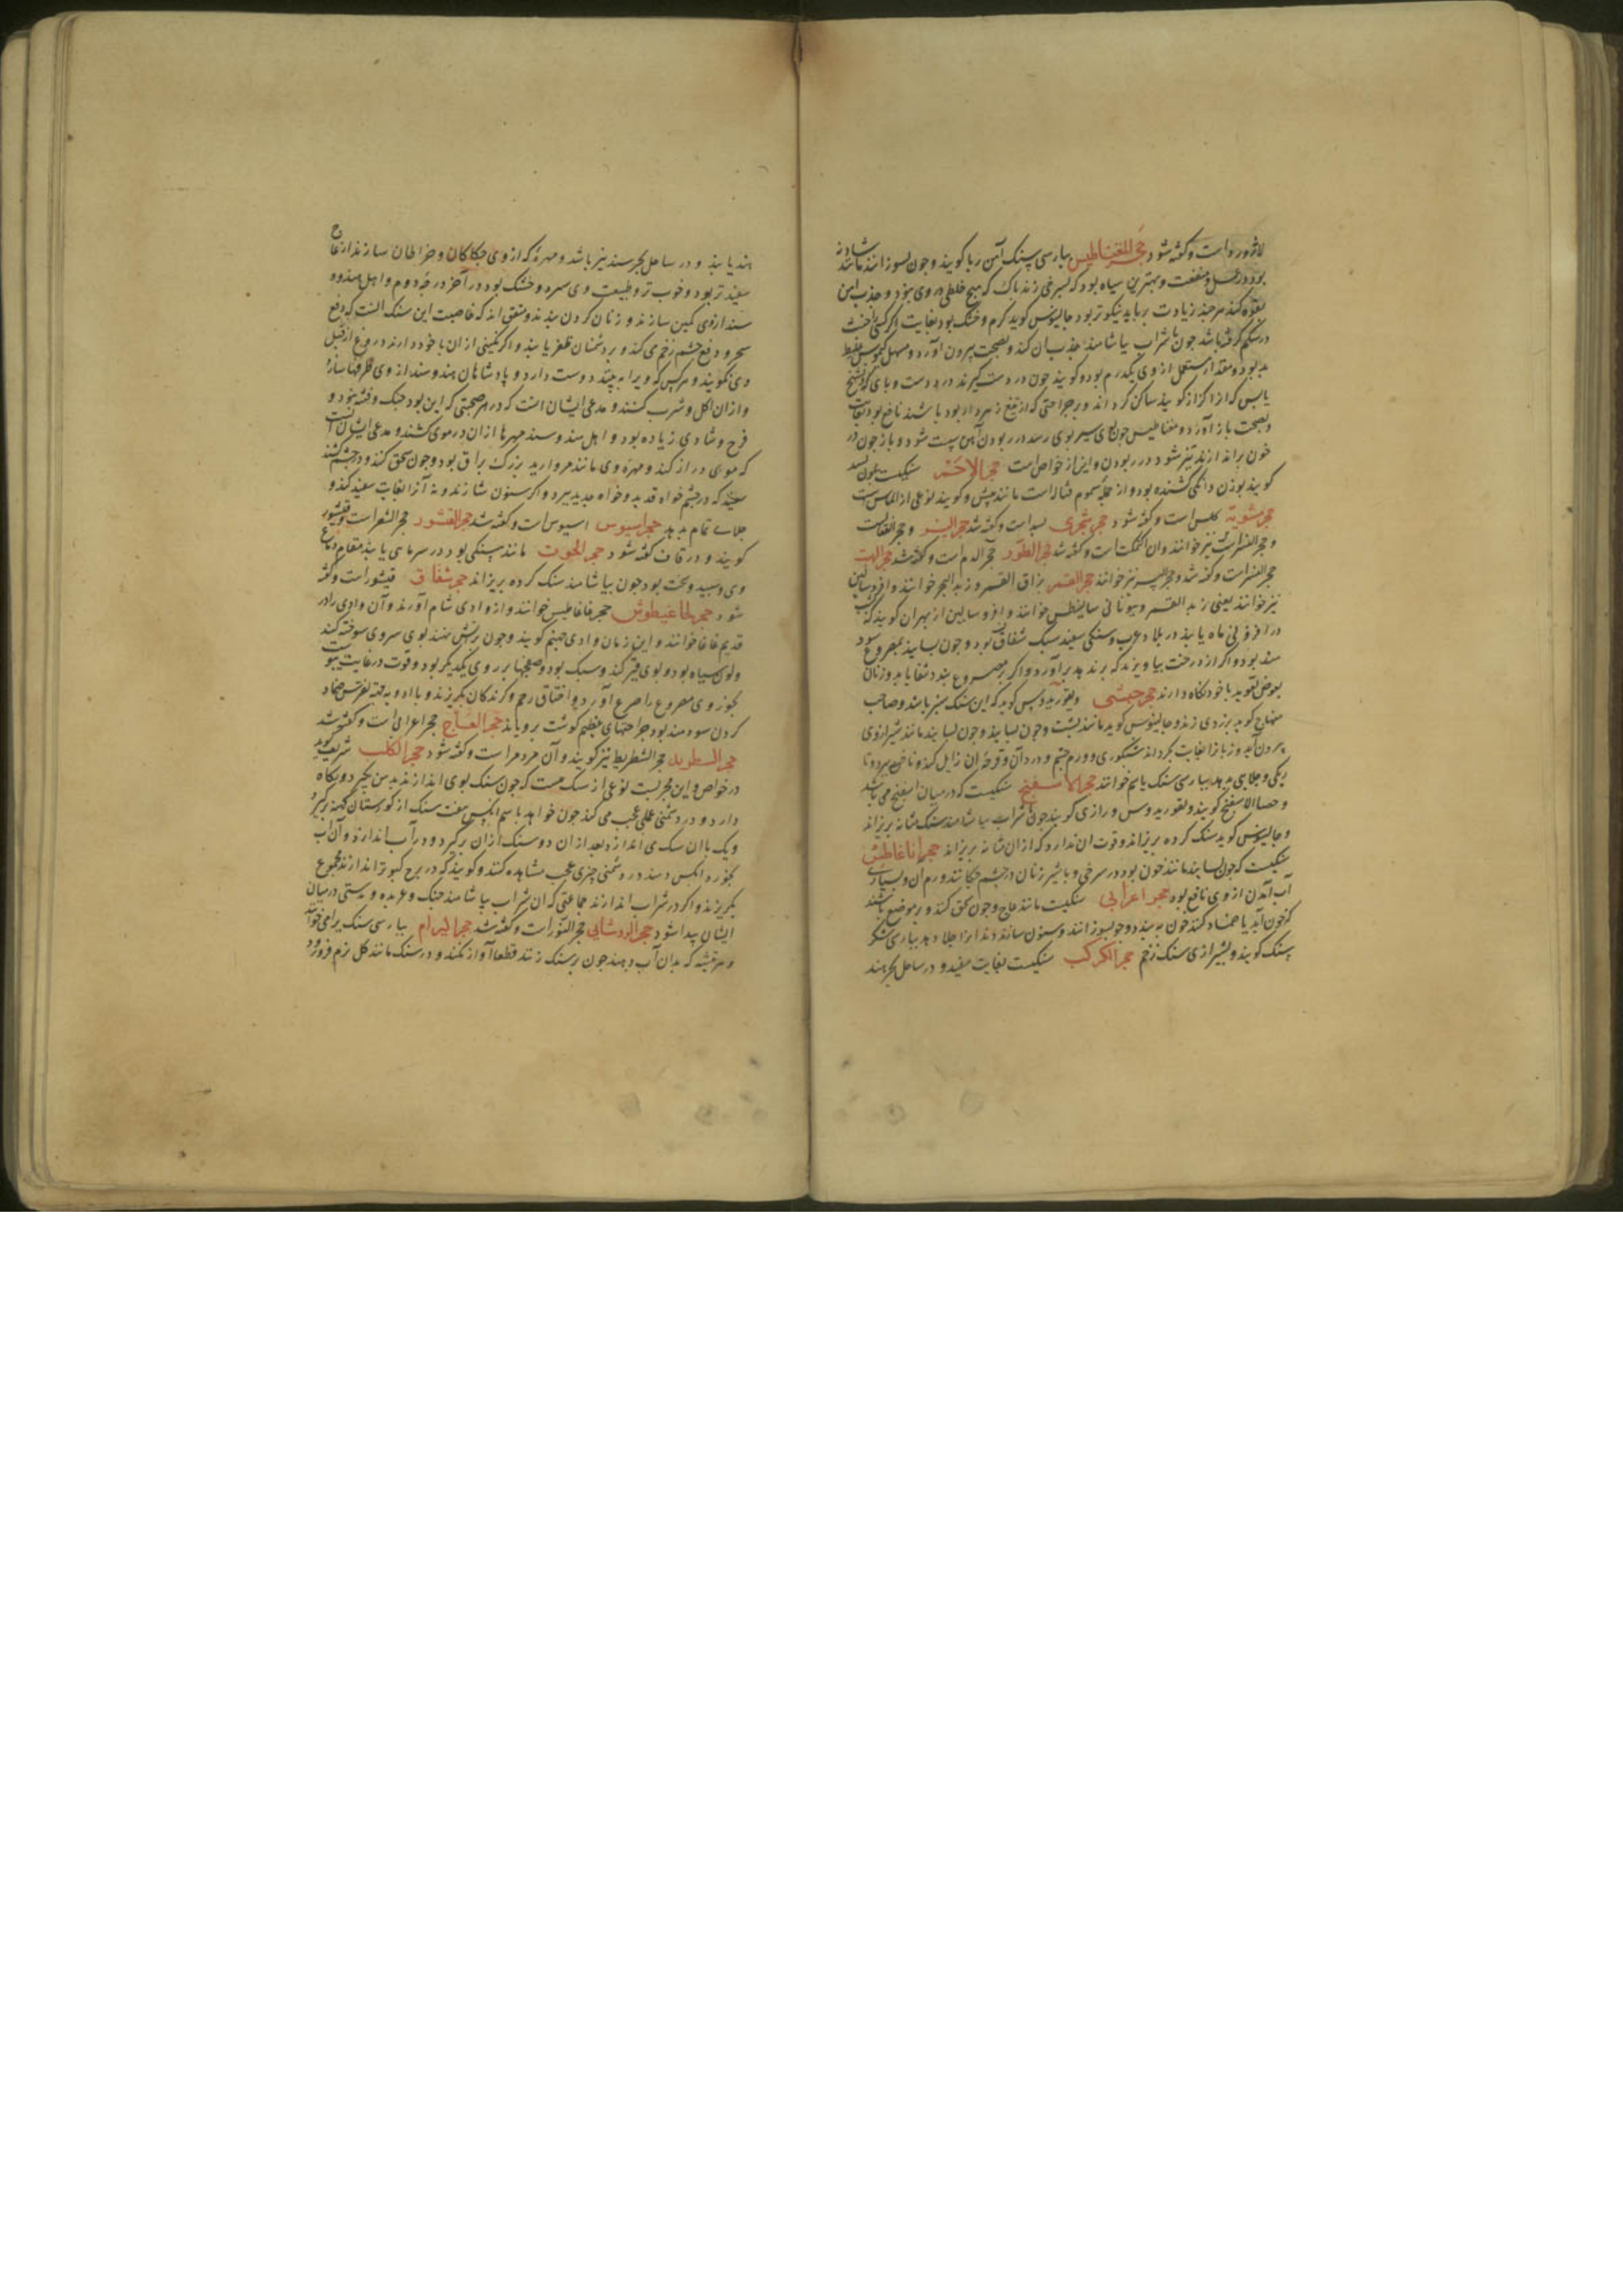 لاژورد است و کفته شود حجر المغناطیس بپارسی سنک آهن ربا کویند و چون بسوزانند مانند شادنه
بود در عمل و منفعت و بهترین سیاه بود که بسرخی زند پاک که هیچ خلطی در وی نبود و جذب آهن
بقوة کند هر چند زیادت رباید نیکوتر بود جالینوس کوید کرم و خشک بود بغایت اکر کسی را خبث
در شکم کرفته باشد چون با شراب بیاشامند جذب آن کند و بصحبت بیرون آورد و مسهل کیموس غلیظ
بد بود و مقدار مستعمل از وی یکدرم بود و کویند چون در دست کیرند درد دست و پای که از تشنج
یابس که از کزاز کویند ساکن کرداند و بر جراحتی که از تیغ زهر داد بود پاشند نافع بود بغایت
و بصحت باز آورد و مغناطیس چون بوی سیر بوی رسد در ربودن آهن سست شود و باز چون در
خون بز اندازند تیز شود در ربودن و این از خواص است حجر الاحمر سنکیست بلون بسد
کویند بوزن دانکی کشنده بود و از جمله سموم قتاله است مانند بیش و کویند نوعی از الماس است
حجر مشویة کلس است و کفته شود حجر شجری بسد است و کفته شد حجر النسر و حجر العقاب
و حجر النسر است نیز خوانند و آن اکتمکت است و کفته شد حجر الطور حجر الدم است و کفته شد حجر البهت
حجر النسر است و کفته شد و حجر الیسر نیز خوانند حجر القمر بزاق القمر و زبد البحر خوانند و افروسالین
نیز خوانند یعنی زبد القمر و بیونانی سالینطس خوانند و افروسالین از بهر آن کویند که
در افزونی ماه یابند در بلاد عرب و سنکی سفید سبک شفاف بود و چون بسایند بمصروع
مند بود و اکر از درخت بیاویزند که بر ندهد بر آورد و اکر بر مصروع بندند شفا یابد و زنان
بعوض تعویذ با خود نکاه دارند حجر حبشی دیقوریدوس کوید که این سنک سبز باشد و صاحب
منهاج کوید بزردی زند و جالینوس کوید مانند یشب و چون بسایند مانند شیر از وی
بیرون آید و زبانرا بغایت بکزد
یکی و جلایی بدهد بپارسی سنک یاسم خوانند حجر الاسفنج سنکیست که در میان اسفنج می باشد
و حصاة الاسفنج کویند دیقوریدوس و رازی کویند چون با شراب بیاشامند سنک مثانه بریزاند
و جالینوس کوید سنک کرده بریزاند و قوت آن ندارد که از آن مثانه بریزاند حجر اناغاطس
سنکیست که چون بسایند مانند خون بود در سرخی و با شیر زنان در چشم چکانند ورم آن و بسیاری
آب آمدن از وی نافع بود حجر اعرابی سنکیست مانند عاج و چون سحق کنند و بر موضع باشند
کزخون آید یا ضماد کنند خون ببندد و چون بسوزانند و سنون سازند دندانرا جلا دهد بپارسی شکر
سنک کویند و بشیرازی سنک زخم حجر الکرکب سنکیست بغایت سفید و در ساحل بحر هند
هند یابند و در ساحل بحر سند نیز باشد و مهره که از وی حکاکان و خراطان سازند از عاج
سفیدتر بود و خوب تر و طبیعت وی سرد و خشک بود در آخر درجه دوم و اهل هند و
سند از وی نکین سازند و زنان کردن بند و متفق اند که خاصیت این سنک آنست که دفع
سحر و دفع چشم زخم می کند و بر دشمنان ظفر یابند و اکر نکینی از آن با خود دارند دروغ از قبل
وی نکویند و هر کس که ویرا به بیند دوست دارد و پادشاهان هند و سند از وی ظرفها سازند
و از آن اکل و شرب کنند و مدعی ایشان آنست که در هر صحبتی که این بود جنک و فتنه نبود و
فرح و شادی زیاده بود و اهل هند و سند مهرها از آن در موی کشند و مدعی ایشان آنست
که موی دراز کند و مهره وی مانند مروارید بزرک براق بود و چون سحق کنند و در چشم کشند
سفیدی که در چشم خواه قدیم و خواه جدید ببرد و اکر سنون سازند دندانرا بغایت سفید کند و
جلاء تمام بدهد حجر اسیوس اسیوس است و کفته شد حجر القشور حجر الشعر است و قیشور
کویند و در قاف کفته شود حجر الحوت مانند سنکی بود در سر ماهی یابند مقام دماغ
وی و سپید و سخت بود چون بیاشامند سنک کرده بریزاند حجر شفاف قیشور است و کفته
شود حجر لحاغیطوس حجر غاغاطیس خوانند و از وادی شام آورند و آن وادی را در
قدیم غاغا خوانند و این زمان وادی جهنم کویند و چون در آتش نهند بوی سروی سوخته کند
ولون سیاه بود و بوی قیر کند و سبک بود و صفحها بر روی یکدیکر بود و قوت در غایت یبوست
بخور وی مصروع را صرع آورد و اختناق رحم و کزندکان بکریزند و با ادویه جهت نقرس ضماد
کردن سودمند بود و جراحتهای عظیم کوشت برویاند حجر العاج حجر اعرابی است و کفته شد
حجر السطریط حجر الشطریط نیز کویند و آن مردمرا است و کفته شود حجر الکلب شریف کوید
در خواص و این مجربست نوعی از سک هست که چون سنک بوی اندازند بدهن بکیرد و نکاه
دارد و در دشمنی عملی عجب می کند چون خواهد باسم آنکس هفت سنک از کورستان کهنه برکیرد
و یک با آن سک می اندازد بعد از آن دو سنک از آن برکیرد و در آب اندازند و آن آب
بخورد آنکس دهند در دشمنی چیزی عجب مشاهده کنند و کویند که در برج کبوتر اندازند مجموع
بکریزند و اکر در شراب اندازند جماعتی که آن شراب بیاشامند جنک و عربده و بدمستی در میان
ایشان پیدا شود حجر الروشنایی حجر النور است و کفته شد حجر البرام بپارسی سنک برام خوانند
و هر تیشه که بدان آب دهند چون بر سنک زنند قطعا آواز نکند و در سنک مانند کل نرم فرو رود